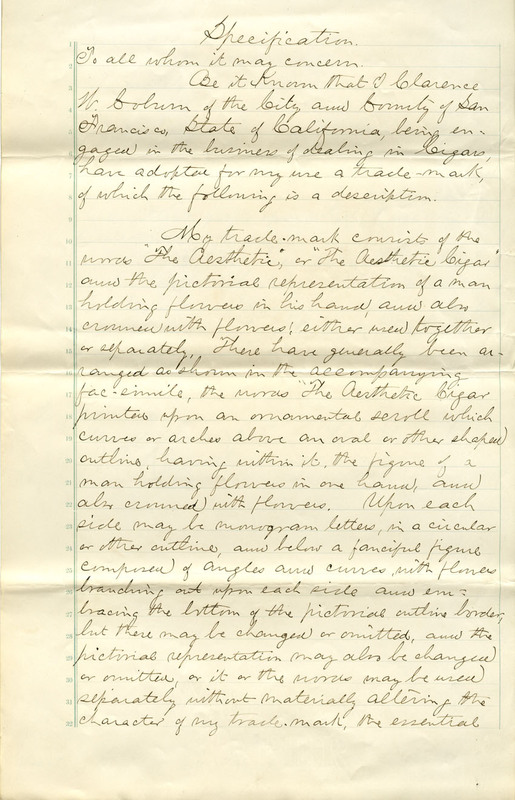 Specification.
To all whom it may concern.
Be it Known that I Clarence
W. Coburn of the City and County of San
Francisco, State of California, being en-
gaged in the business of dealing in Cigars,
have adopted for my use a trade-mark,
of which the following is a description.
My trade-mark consists of the
words "The Aesthetic", or "The Aesthetic Cigar"
and the pictorial representation of a man
holding flowers in his hand, and also
crowned with flowers; either used together
or separately. These have generally been ar-
ranged as shown in the accompanying
fac-simile, the words "The Aesthetic Cigar
printed upon an ornamental scroll which
curves or arches above an oval or other shaped
outline, having within it, the figure of a
man holding flowers in one hand, and
also crowned with flowers. Upon each
side may be monogram letters, in a circular
or other outline, and below a fanciful figure
composed of angles and curves, with flowers
branching out upon each side and em-
bracing the bottom of the pictorial outline border,
but there may be changed or omitted, and the
pictorial representation may also be changed
or omitted, or it or the words may be used
separately without materially altering the
character of my trade-mark, the essential